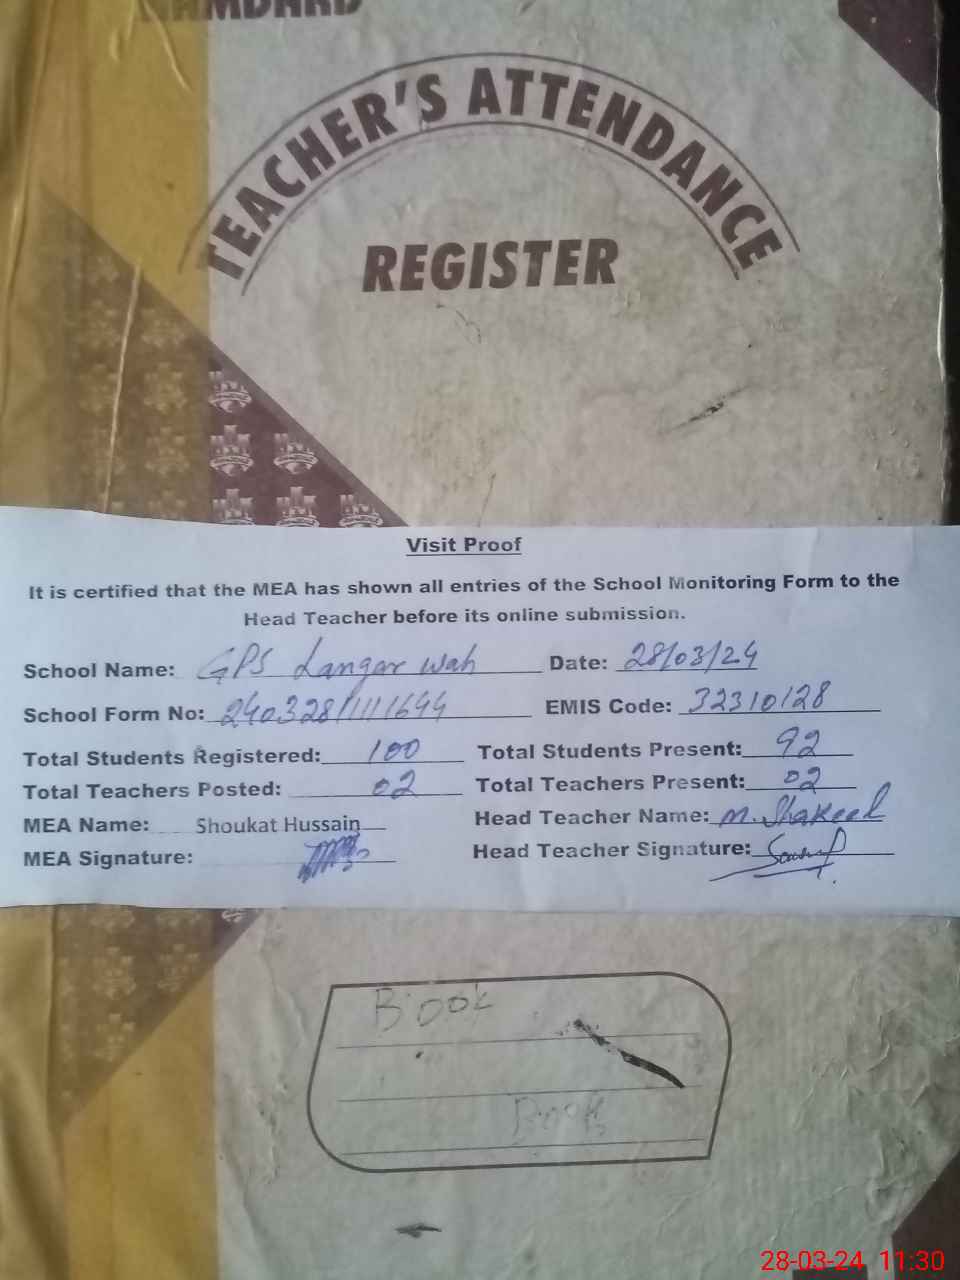 HAMDARD
TEACHER'S ATTENDANCE
REGISTER
Visit Proof
It is certified that the MEA has shown all entries of the School Monitoring Form to the
Head Teacher before its online submission.
School Name: GPS Langar wah Date: 28/03/24
School Form No: 240328/111/1644 EMIS Code: 32310128
Total Students Registered: 100 Total Students Present: 92
Total Teachers Posted: 02 Total Teachers Present: 02
MEA Name: Shoukat Hussain Head Teacher Name: M. Shakeel
MEA Signature: Head Teacher Signature:
Book
Book
28-03-24 11:30